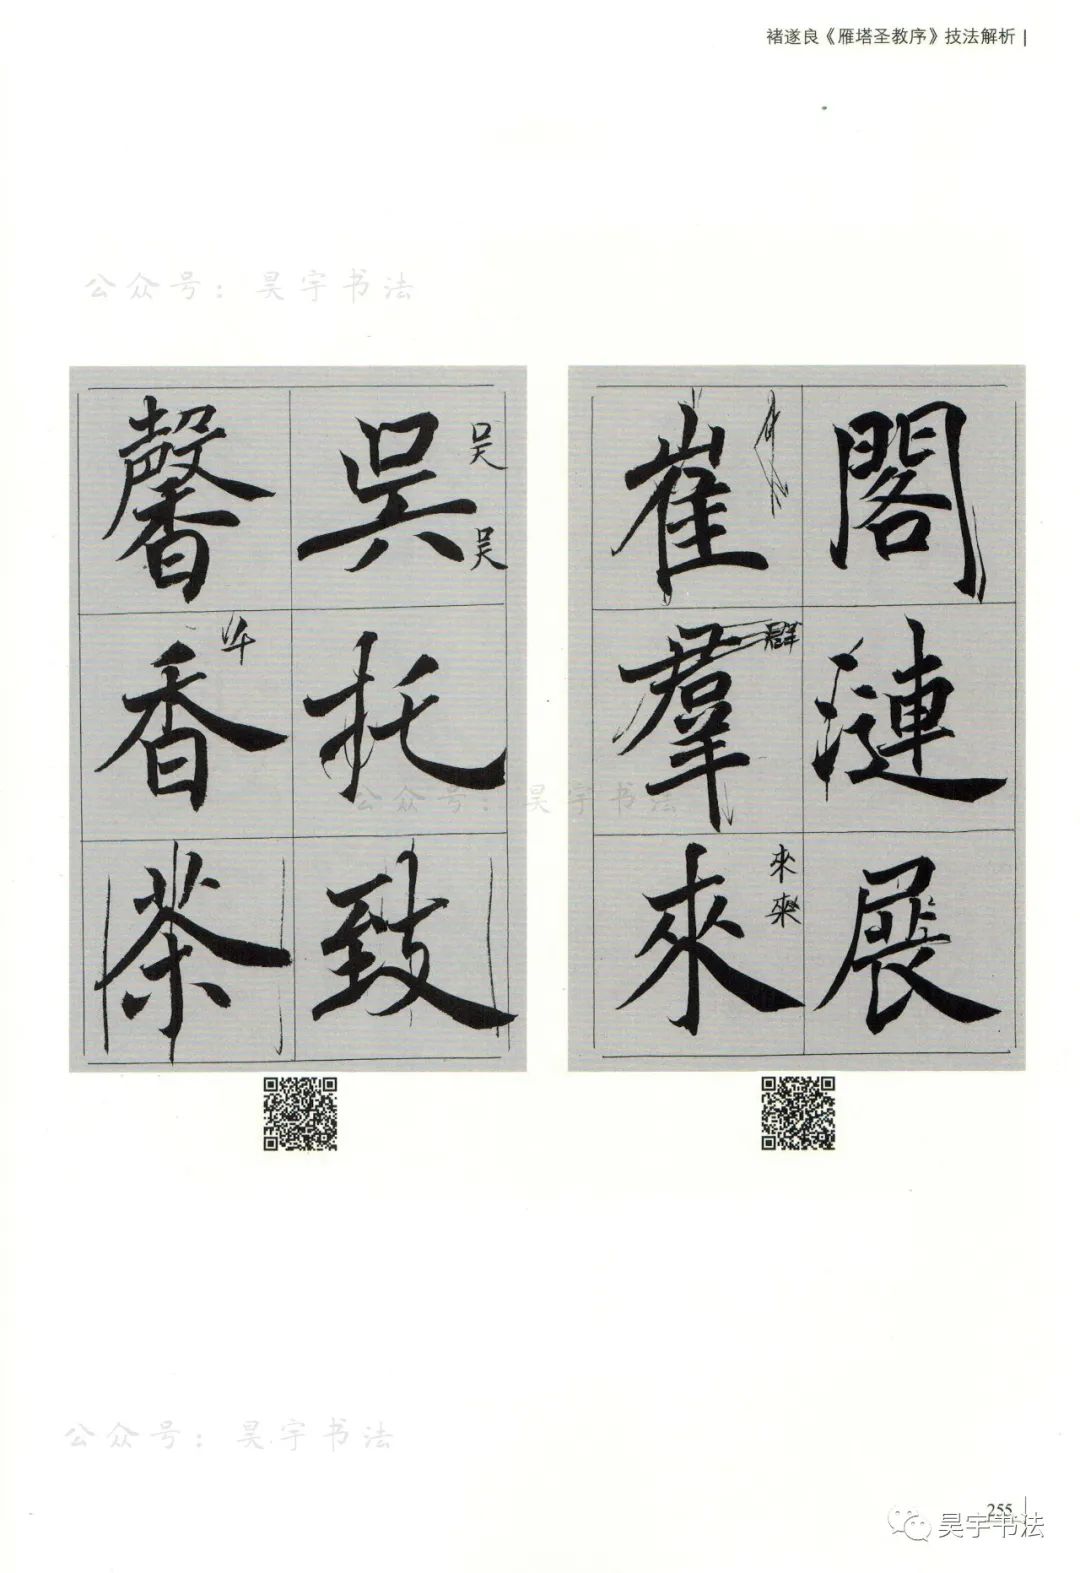 褚遂良《雁塔圣教序》技法解析
公众号：昊宇书法
閣漣展
崔羣來
群
來
來
吳托致
馨香茶
吴
吴
公众号：昊宇书法
公众号：昊宇书法
255
昊宇书法